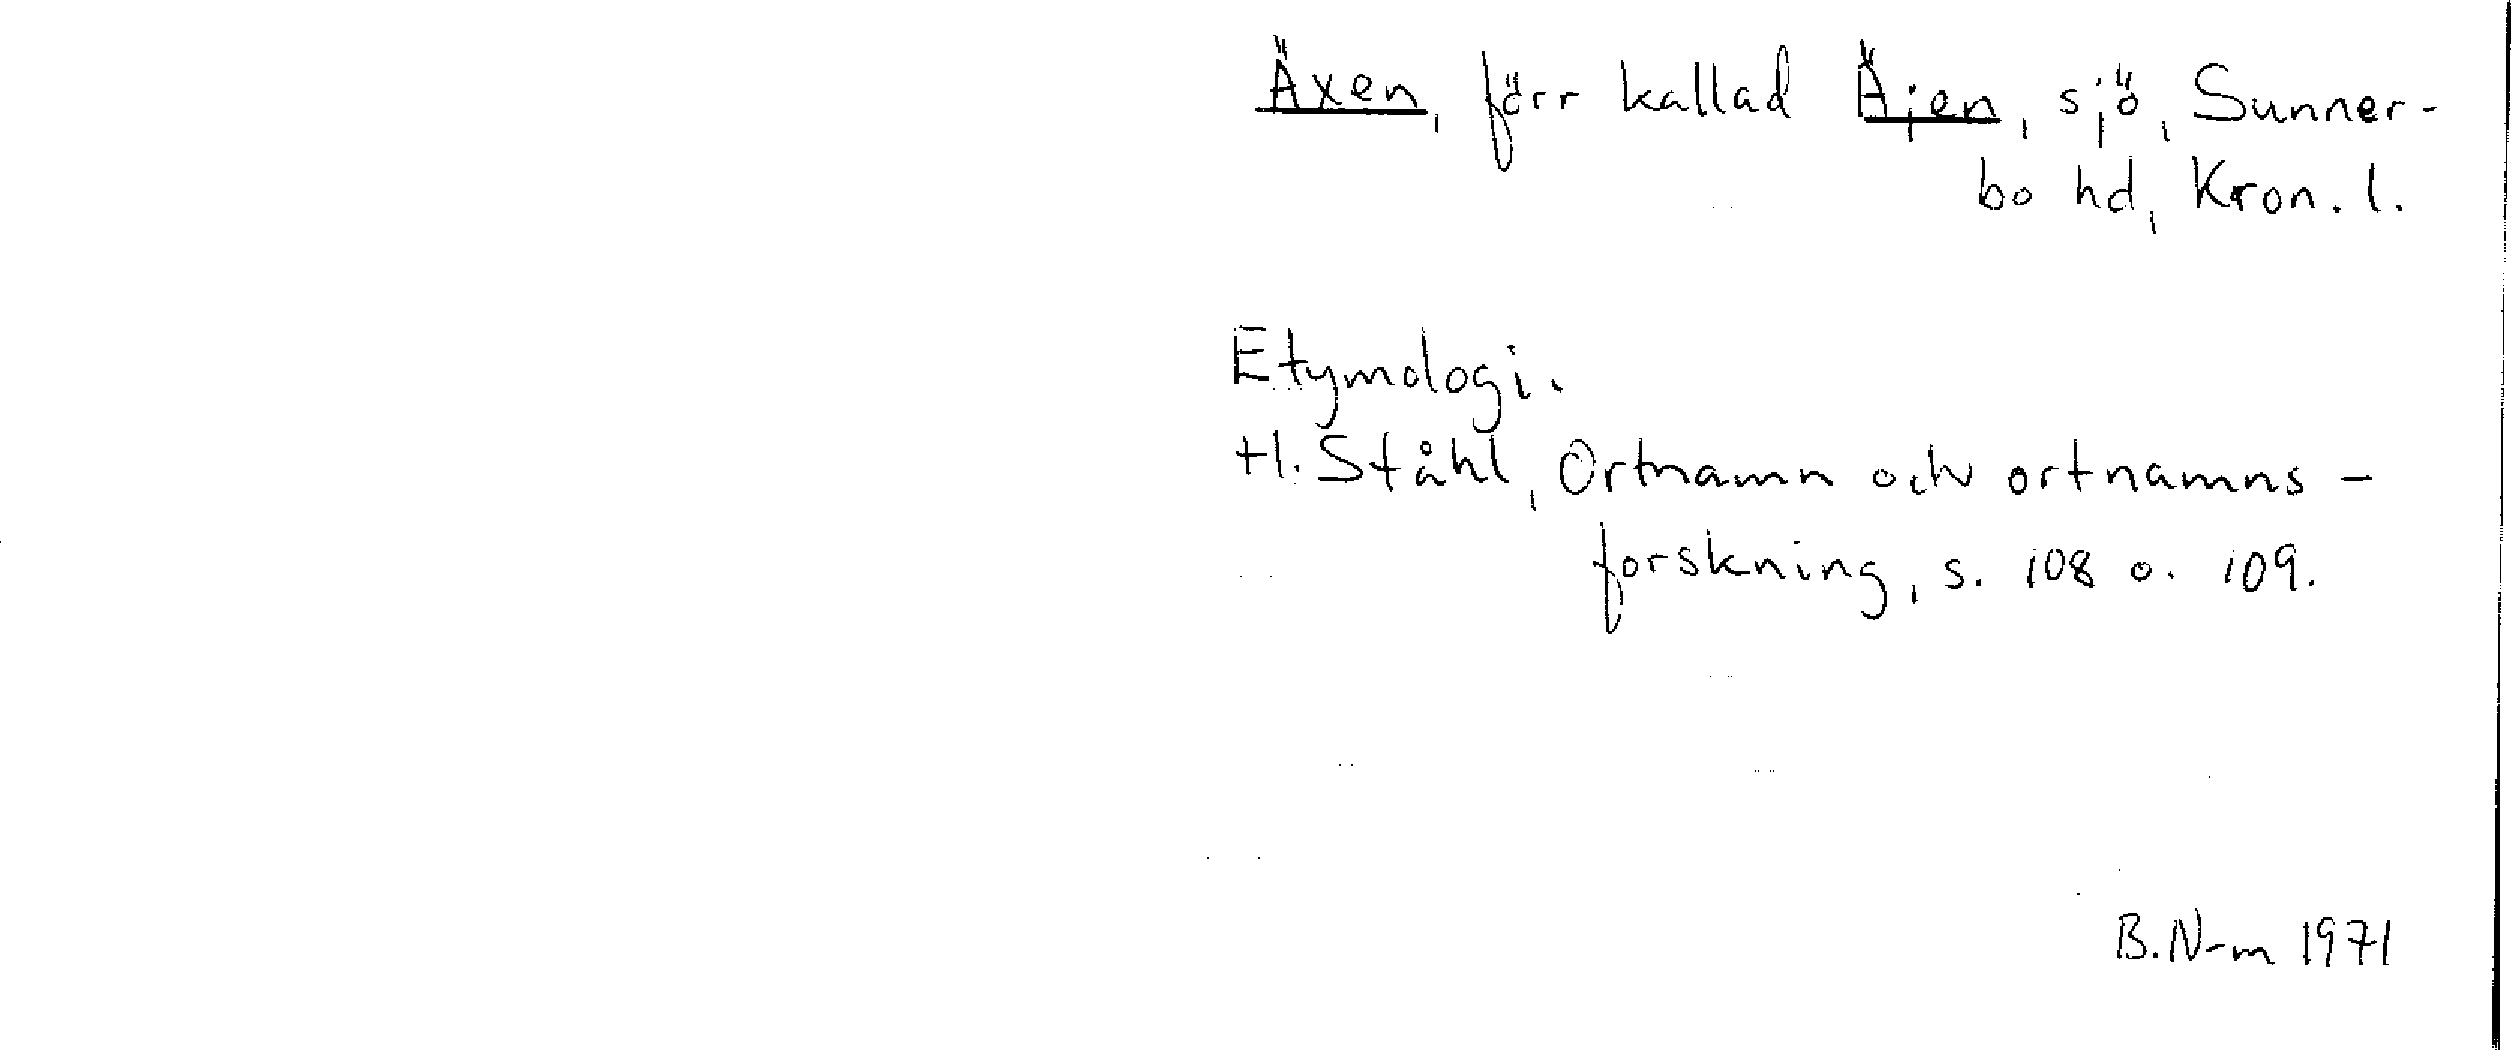 Äxen, förr kallad Äjen, sjö, Sunner-
bo hd, Kron. l.
Etymologi.
H. Ståhl, Ortnamn och ortnamns-
forskning, s. 108 o. 109.
B. N-m 1971